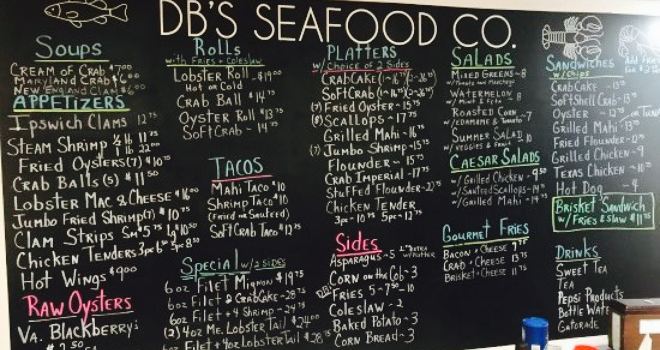 DB'S SEAFOOD CO.
Soups
CREAM OF CRAB $7.00
MARYLAND CRAB $6.00
NEW ENGLAND CLAM $6.00
APPETIZERS
IPSWICH CLAMS 12.75
STEAM SHRIMP 1/2 lb 11.75
1 lb 22
FRIED OYSTERS (7) $10.75
CRAB BALLS (5) $11.50
LOBSTER MAC & CHEESE $16.00
JUMBO FRIED SHRIMP (7) $10
CLAM STRIPS SM 5.75 LG 10.50
CHICKEN TENDERS 3pc 6.50 5pc 8.50
HOT WINGS $9.00
RAW OYSTERS
VA. BLACKBERRY:
Rolls
with FRIES + COLESLAW
LOBSTER ROLL - $19.00
HOT OR COLD
CRAB BALL $14.75
OYSTER ROLL $13.75
SOFT CRAB - $14.75
TACOS
MAHI TACO $10
SHRIMP TACO $10
(FRIED OR SAUTEED)
SOFT CRAB TACO $12
Special w/2 SIDES
6 oz FILET MIGNON $19.75
6 oz FILET & CRABCAKE - 28.75
6 oz FILET + 4 SHRIMP - 24.75
(2) 4oz ME. LOBSTER TAIL $24.00
FILET + 4oz LOBSTER TAIL
PLATTERS
w/ CHOICE OF 2 SIDES
CRABCAKE
SOFTCRAB
(7) FRIED OYSTER - 15.75
(8) SCALLOPS - 17.75
GRILLED MAHI - 16.75
(7) JUMBO SHRIMP - 15.75
FLOUNDER - 15.75
CRAB IMPERIAL - 17.75
STUFFED FLOUNDER - 21.75
CHICKEN TENDER
3pc - 10.75 5pc - 12.75
Sides
ASPARAGUS - 5
CORN ON THE COB - 3
FRIES 5 - 7.50 - 10
COLESLAW - 2
BAKED POTATO - 3
CORN BREAD - 3
SALADS
MIXED GREENS - 8
WATERMELON - 8
w/ MINT & FETA
ROASTED CORN
w/ EDAMAME & TOMATO - 7
SUMMER SALAD - 10
w/ VEGGIES & FRUIT
CAESAR SALADS
w/ GRILLED CHICKEN - 9.50
w/ SAUTEED SCALLOPS - 14
w/ GRILLED MAHI - 14
GOURMET FRIES
BACON + CHEESE
CRAB + CHEESE 13.75
BRISKET + CHEESE 11
SANDWICHES
w/ CHIPS
ADD FRIES
CRABCAKE - 13
SOFTSHELL CRAB - 13
OYSTER - 12
GRILLED MAHI - 13
FRIED FLOUNDER
GRILLED CHICKEN - 9
TEXAS CHICKEN - 10
HOT DOG - 4
BRISKET SANDWICH
w/ FRIES & SLAW $11.75
DRINKS
SWEET TEA
TEA
PEPSI PRODUCTS
BOTTLE WATER
GATORADE